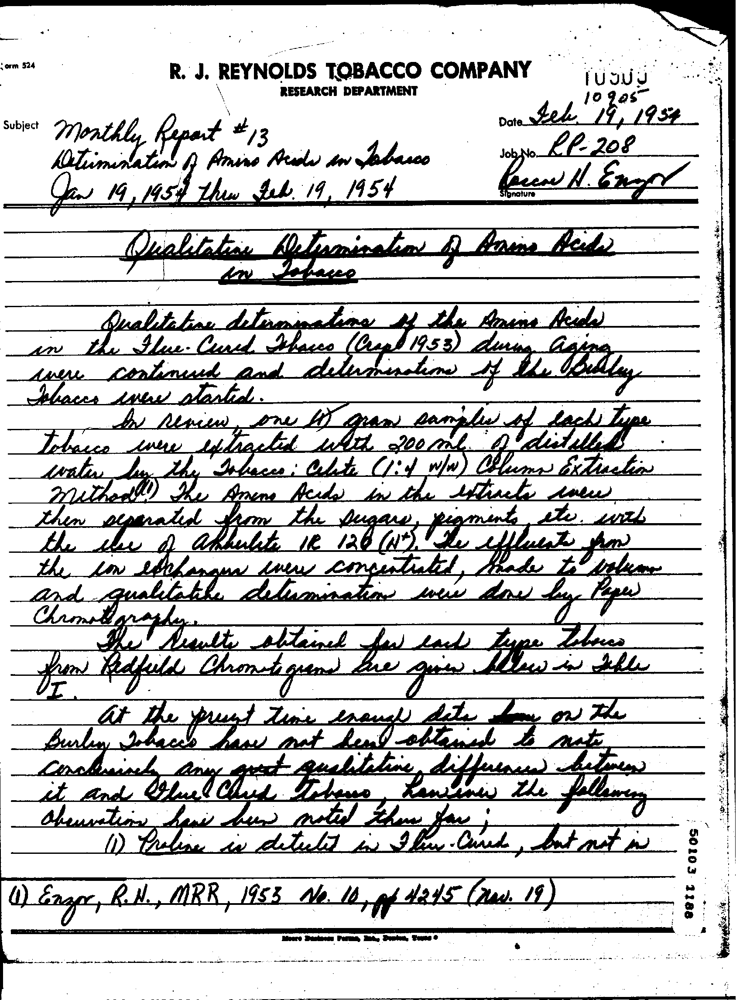 Form 524
R. J. REYNOLDS TOBACCO COMPANY
RESEARCH DEPARTMENT
10905
10905
Subject Monthly Report #13
Date Feb. 19, 1954
Determination of Amino Acids in Tobacco
Job No. RP-208
Jan 19, 1954 thru Feb. 19, 1954
H. Enzor
Signature
Qualitative Determination of Amino Acids
in Tobacco
Qualitative determinations of the Amino Acids
in the Flue-Cured Tobacco (Crop 1953) during aging
were continued and determinations of the Burley
Tobacco were started.
In review, one gram samples of each type
tobacco were extracted with 200 ml. of distilled
water by the Tobacco: Celite (1:4 w/w) Column Extraction
Method(1). The Amino Acids in the extracts were
then separated from the sugars, pigments, etc. with
the use of Amberlite IR 120 (H+). The effluents from
the ion exchangers were concentrated, made to volume
and qualitative determination were done by Paper
Chromatography.
The results obtained for each type tobacco
from Redfield Chromatograms are given below in Table
I.
At the present time enough data on the
Burley Tobacco have not been obtained to note
conclusively any great qualitative differences between
it and Flue Cured Tobacco, however the following
observation have been noted thus far;
(1) Proline is detected in Flue-Cured, but not in
(1) Enzor, R.H., MRR, 1953 No. 10, pp 4245 (Nov. 19)
50103 1188
Moore Business Forms, Inc., Denton, Texas